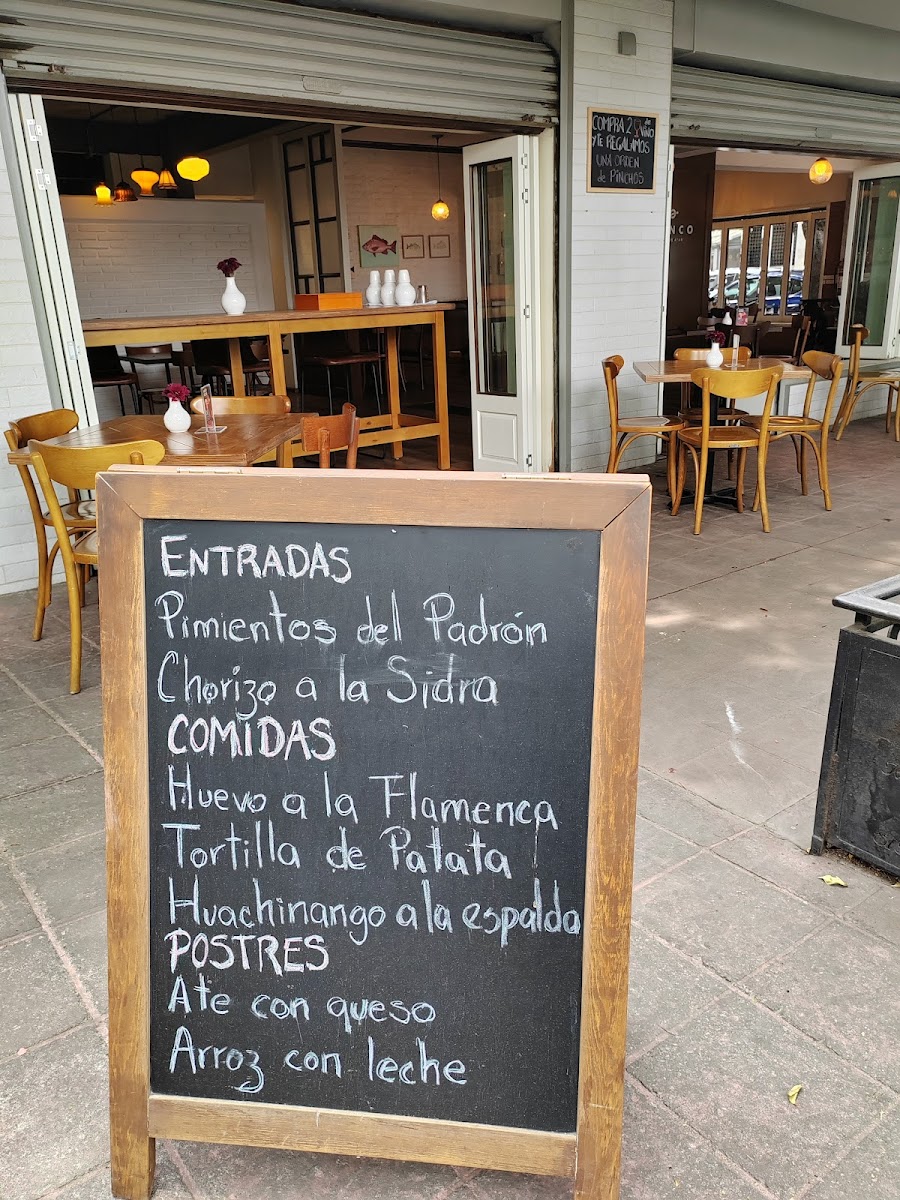 COMPRA 2 de
VINO
y TE REGALAMOS
UNA ORDEN
de PINCHOS
NCO
ENTRADAS
Pimientos del Padrón
Chorizo a la Sidra
COMIDAS
Huevo a la Flamenca
Tortilla de Patata
Huachinango a la espalda
POSTRES
Ate con queso
Arroz con leche